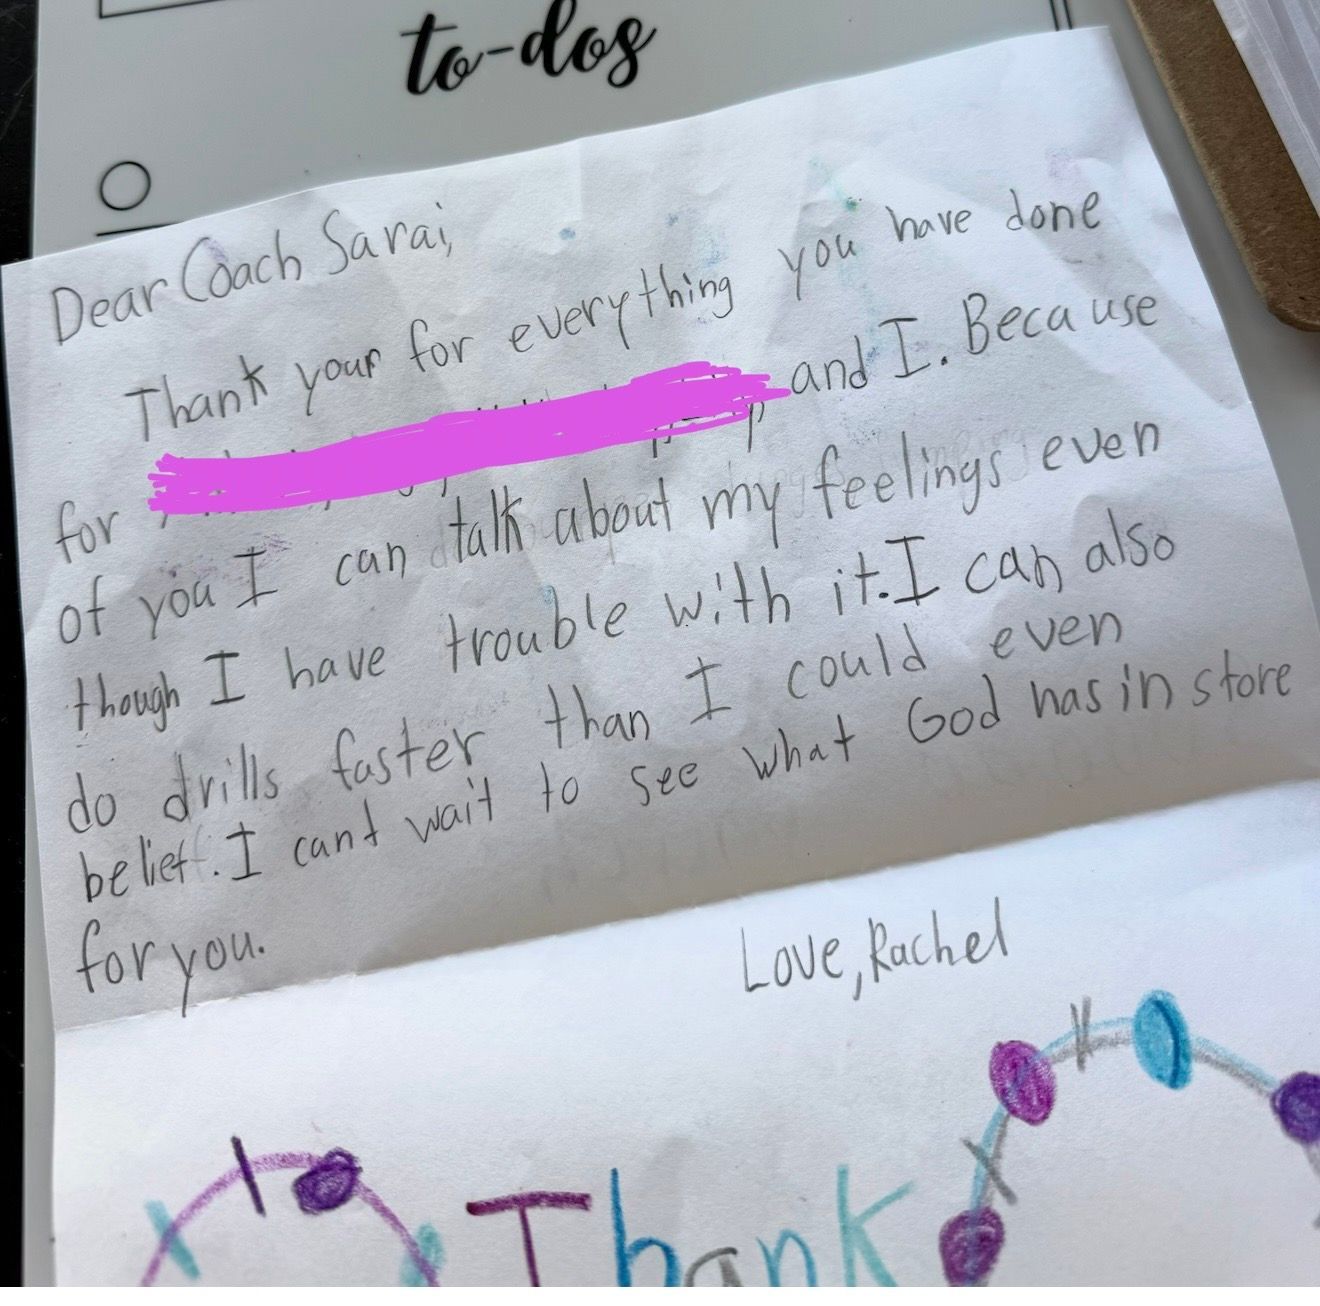 to-dos
Dear Coach Sarai,
Thank your for everything you have done
for and I. Because
of you I can talk about my feelings even
though I have trouble with it. I can also
do drills faster than I could even
belief. I cant wait to see what God has in store
for you.
Love, Rachel
Thank